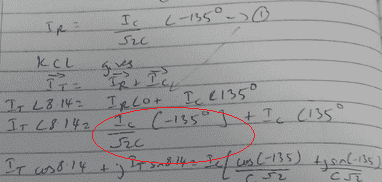 I_R = I_C / √2C ∠-135° → ①
KCL gives
I_T = I_R + I_C
I_T ∠8.14 = I_R ∠0 + I_C ∠135°
I_T ∠8.14 = I_C / √2C (-135°) + I_C ∠135°
I_T cos 8.14 + j I_T sin 8.14 = I_C [cos(-135) / C√2 + j sin(-135) / C√2